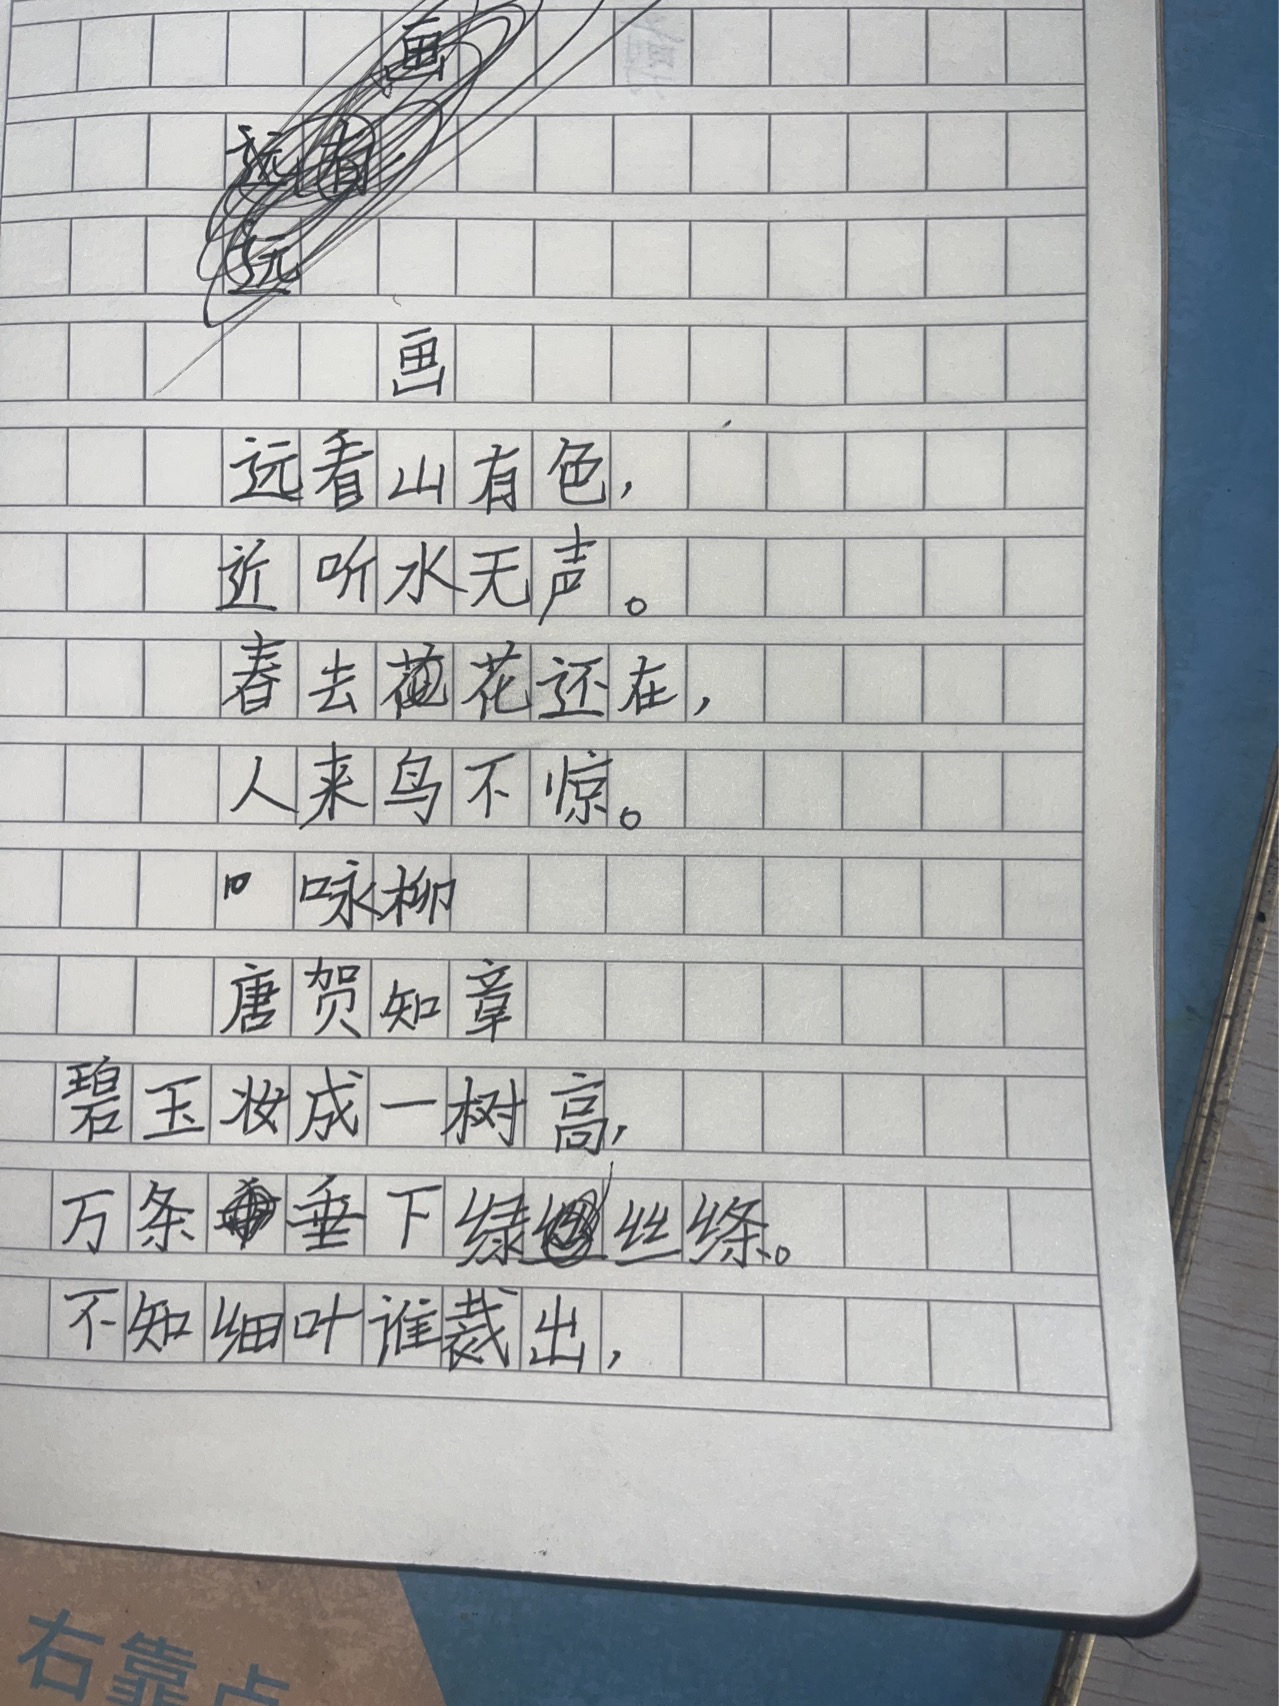 画
远看山有色，
近听水无声。
春去花还在，
人来鸟不惊。
咏柳
唐贺知章
碧玉妆成一树高，
万条垂下绿丝绦。
不知细叶谁裁出，
右靠点